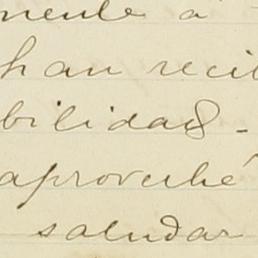 mente a
han reci
bilidad -
aproveché
saludar